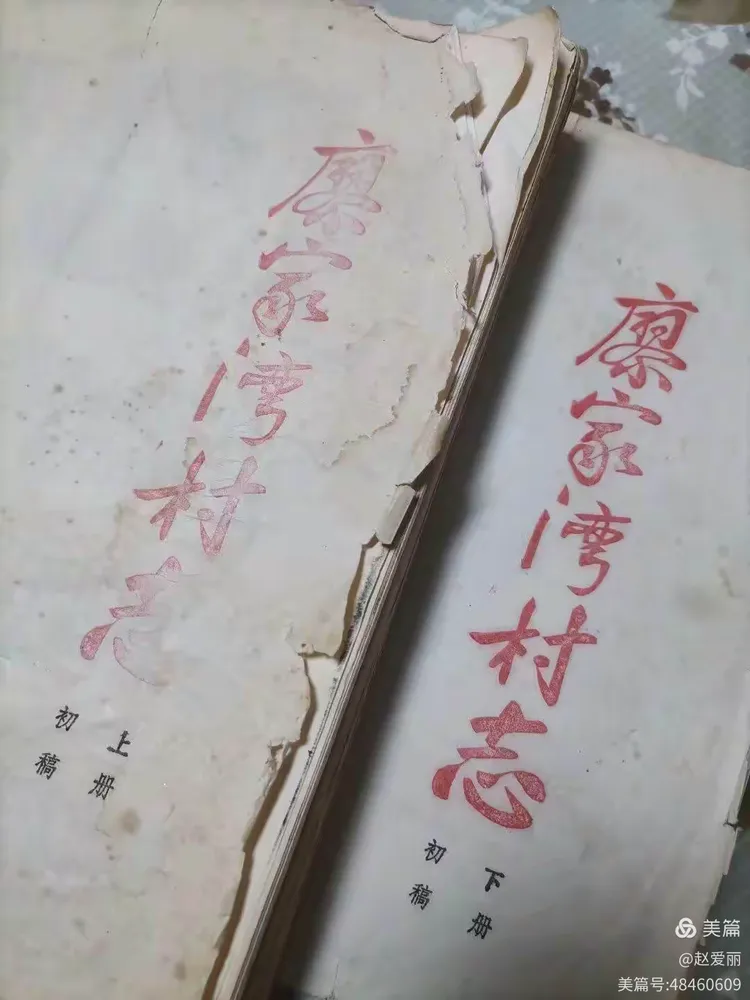 廖家湾村志
上册
初稿
廖家湾村志
下册
初稿
美篇
@赵爱丽
美篇号:48460609